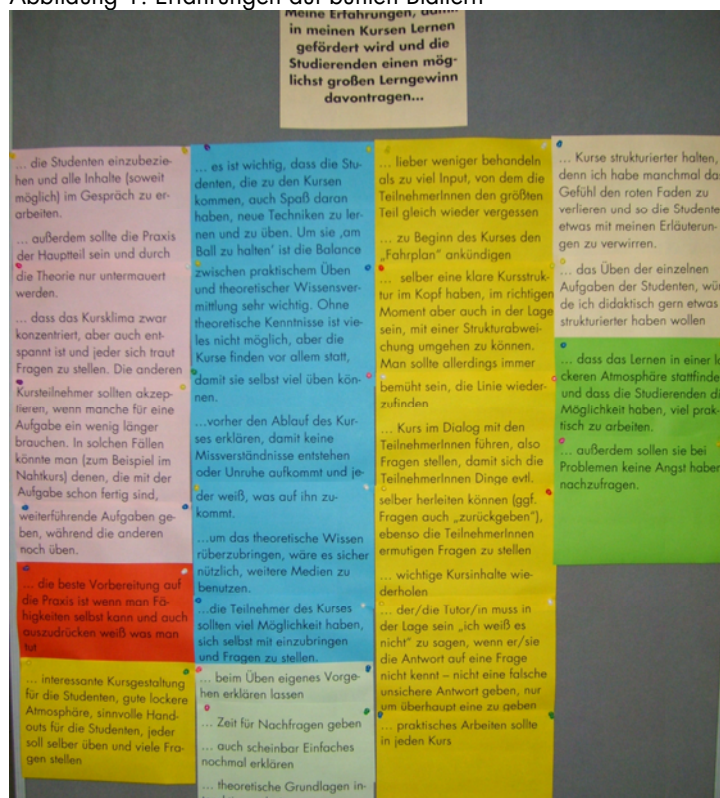 Abbildung 1: Erfahrungen auf bunten Blättern
Meine Erfahrungen, damit
in meinen Kursen Lernen
gefördert wird und die
Studierenden einen mög-
lichst großen Lerngewinn
davontragen...
... die Studenten einzubezie-
hen und alle Inhalte (soweit
möglich) im Gespräch zu er-
arbeiten.
... außerdem sollte die Praxis
der Hauptteil sein und durch
die Theorie nur untermauert
werden.
... dass das Kursklima zwar
konzentriert, aber auch ent-
spannt ist und jeder sich traut
Fragen zu stellen. Die anderen
Kursteilnehmer sollten akzep-
tieren, wenn manche für eine
Aufgabe ein wenig länger
brauchen. In solchen Fällen
könnte man (zum Beispiel im
Nahtkurs) denen, die mit der
Aufgabe schon fertig sind,
weiterführende Aufgaben ge-
ben, während die anderen
noch üben.
... die beste Vorbereitung auf
die Praxis ist wenn man Fä-
higkeiten selbst kann und auch
auszudrücken weiß was man
tut
... interessante Kursgestaltung
für die Studenten, gute lockere
Atmosphäre, sinnvolle Hand-
outs für die Studenten, jeder
soll selber üben und viele Fra-
gen stellen
... es ist wichtig, dass die Stu-
denten, die zu den Kursen
kommen, auch Spaß daran
haben, neue Techniken zu ler-
nen und zu üben. Um sie ‚am
Ball zu halten' ist die Balance
zwischen praktischem Üben
und theoretischer Wissensver-
mittlung sehr wichtig. Ohne
theoretische Kenntnisse ist vie-
les nicht möglich, aber die
Kurse finden vor allem statt,
damit sie selbst viel üben kön-
nen.
...vorher den Ablauf des Kur-
ses erklären, damit keine
Missverständnisse entstehen
oder Unruhe aufkommt und je-
der weiß, was auf ihn zu-
kommt.
...um das theoretische Wissen
rüberzubringen, wäre es sicher
nützlich, weitere Medien zu
benutzen.
...die Teilnehmer des Kurses
sollten viel Möglichkeit haben,
sich selbst mit einzubringen
und Fragen zu stellen.
... beim Üben eigenes Vorge-
hen erklären lassen
... Zeit für Nachfragen geben
... auch scheinbar Einfaches
nochmal erklären
... theoretische Grundlagen in-
... lieber weniger behandeln
als zu viel Input, von dem die
TeilnehmerInnen den größten
Teil gleich wieder vergessen
... zu Beginn des Kurses den
„Fahrplan" ankündigen
... selber eine klare Kursstruk-
tur im Kopf haben, im richtigen
Moment aber auch in der Lage
sein, mit einer Strukturabwei-
chung umgehen zu können.
Man sollte allerdings immer
bemüht sein, die Linie wieder-
zufinden
... Kurs im Dialog mit den
TeilnehmerInnen führen, also
Fragen stellen, damit sich die
TeilnehmerInnen Dinge evtl.
selber herleiten können (ggf.
Fragen auch „zurückgeben"),
ebenso die TeilnehmerInnen
ermutigen Fragen zu stellen
... wichtige Kursinhalte wie-
derholen
... der/die Tutor/in muss in
der Lage sein „ich weiß es
nicht" zu sagen, wenn er/sie
die Antwort auf eine Frage
nicht kennt – nicht eine falsche
unsichere Antwort geben, nur
um überhaupt eine zu geben
... praktisches Arbeiten sollte
in jeden Kurs
... Kurse strukturierter halten,
denn ich habe manchmal das
Gefühl den roten Faden zu
verlieren und so die Studenten
etwas mit meinen Erläuterun-
gen zu verwirren.
... das Üben der einzelnen
Aufgaben der Studenten, wür-
de ich didaktisch gern etwas
strukturierter haben wollen
... dass das Lernen in einer lo-
ckeren Atmosphäre stattfindet
und dass die Studierenden die
Möglichkeit haben, viel prak-
tisch zu arbeiten.
... außerdem sollen sie bei
Problemen keine Angst haben
nachzufragen.